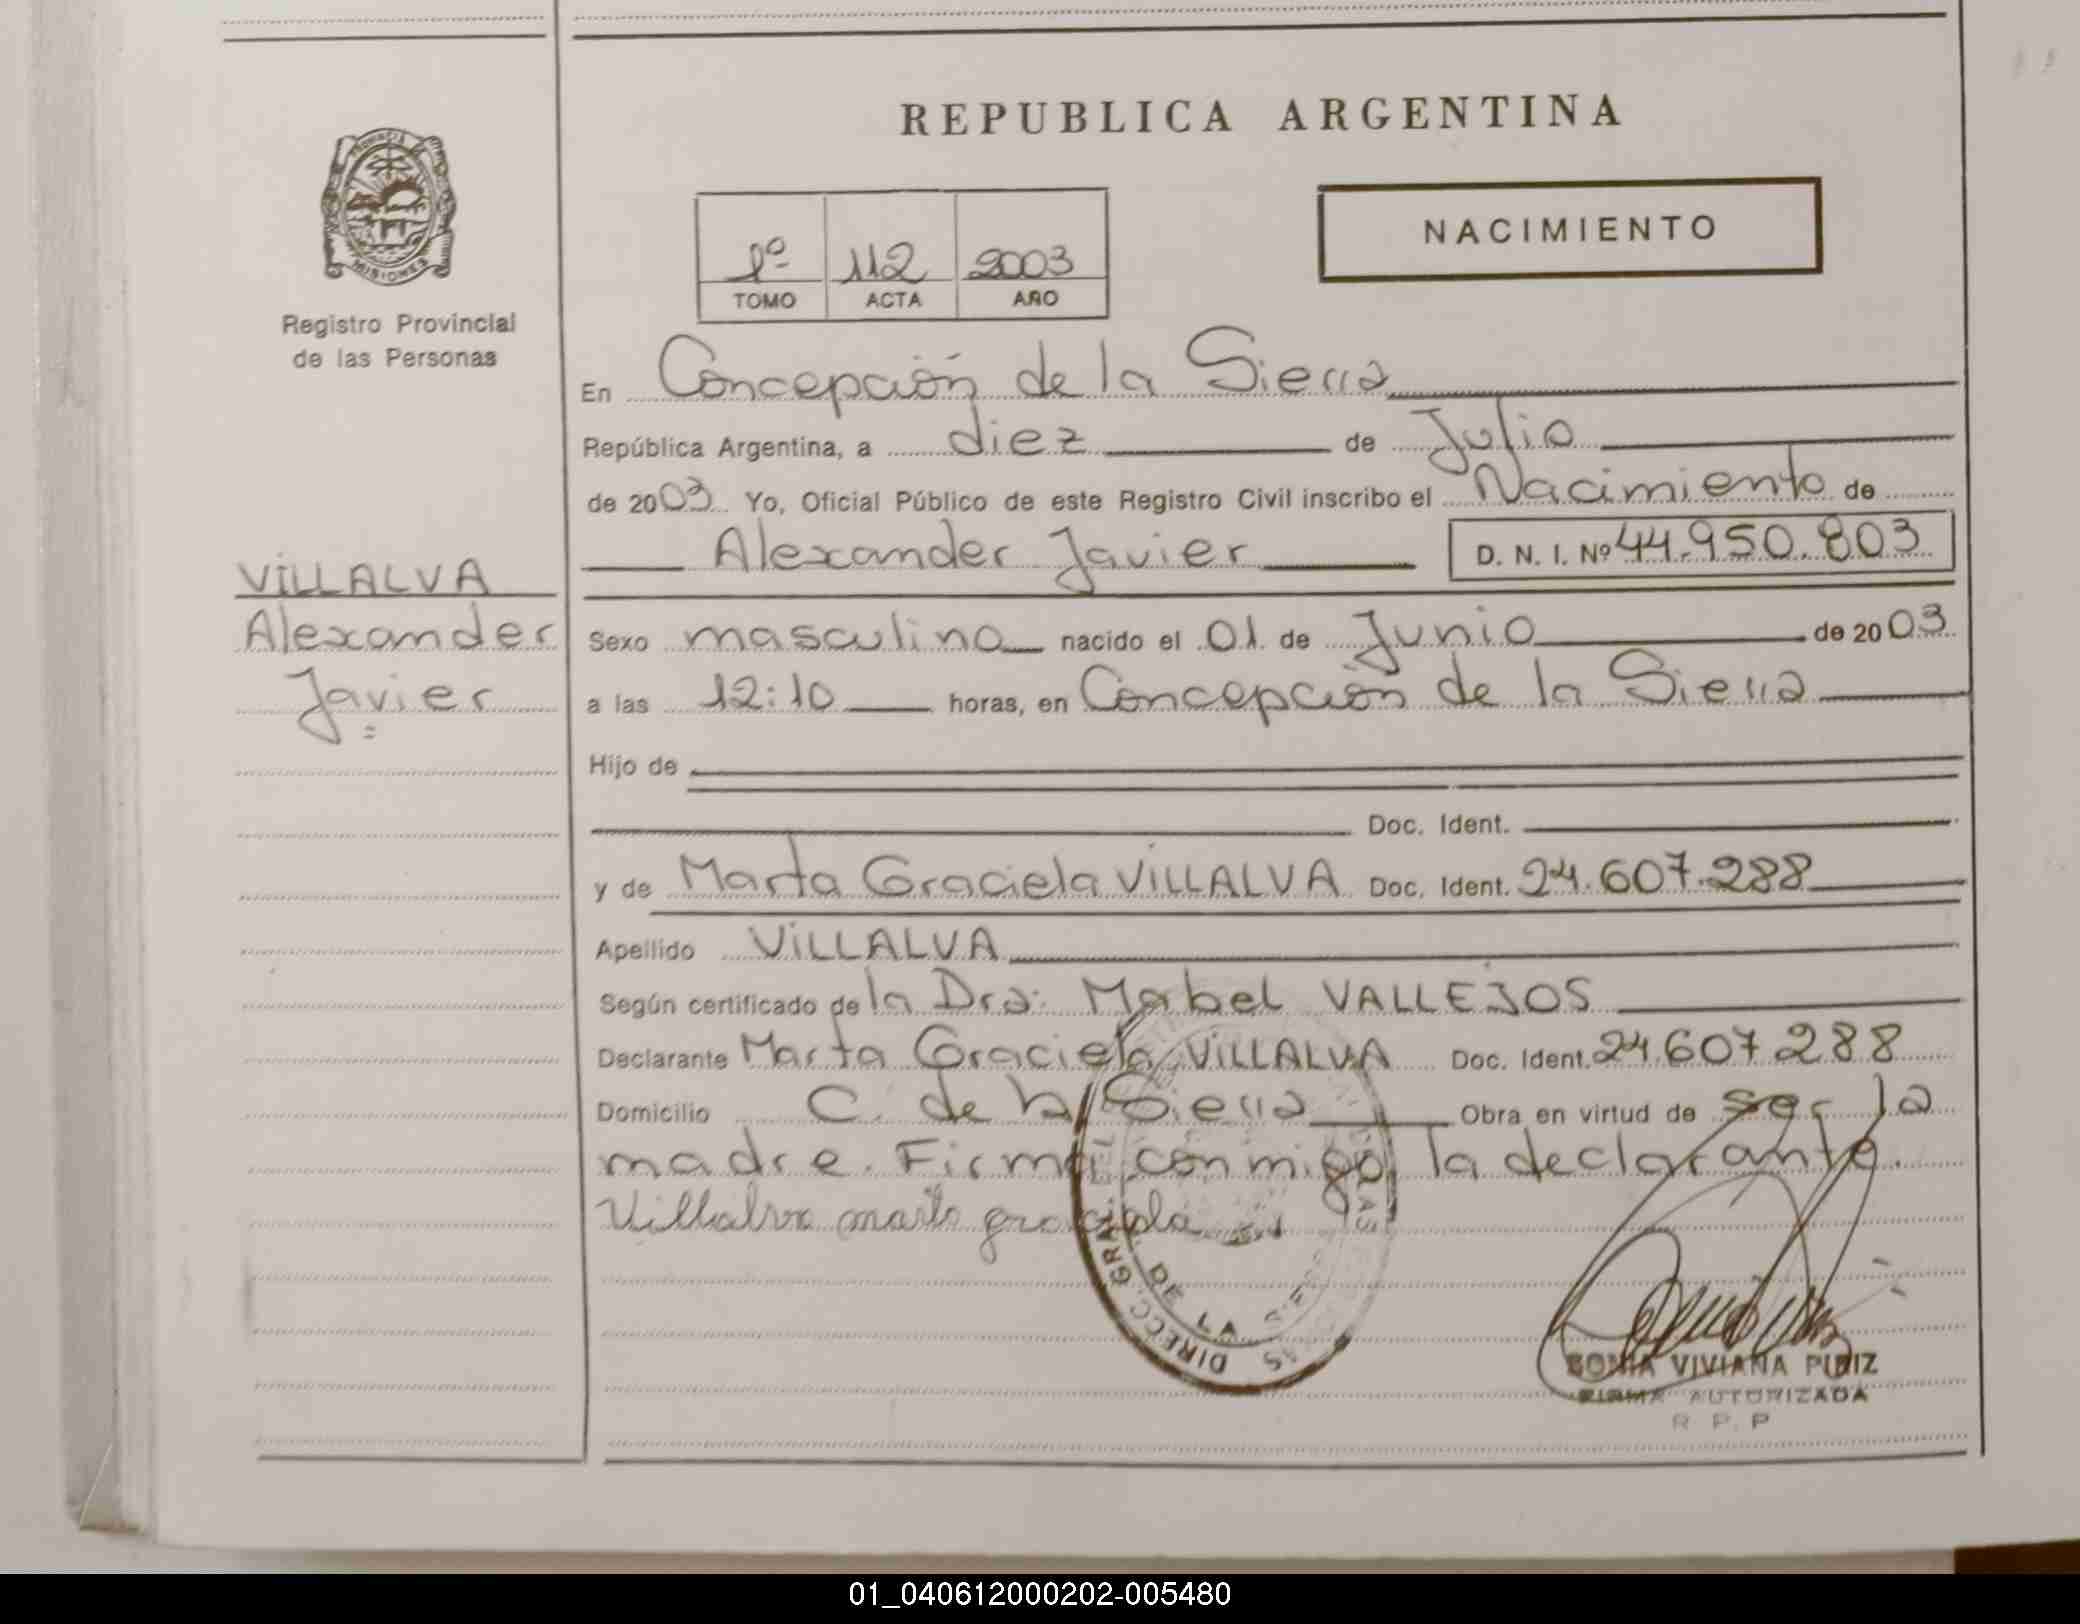 REPUBLICA ARGENTINA
NACIMIENTO
1º 112 2003
TOMO ACTA AÑO
PROVINCIA DE
MISIONES
Registro Provincial
de las Personas
VILLALVA
Alexander
Javier
En Concepción de la Sierra
República Argentina, a diez de Julio
de 2003 Yo, Oficial Público de este Registro Civil inscribo el Nacimiento de
Alexander Javier D. N. I. Nº 44.950.803
Sexo masculino nacido el 01 de Junio de 2003
a las 12:10 horas, en Concepción de la Sierra
Hijo de
Doc. Ident.
y de Marta Graciela VILLALVA Doc. Ident. 24.607.288
Apellido VILLALVA
Según certificado de la Dra: Mabel VALLEJOS
Declarante Marta Graciela VILLALVA Doc. Ident. 24.607.288
Domicilio C. de la Sierra Obra en virtud de ser la
madre. Firma conmigo la declarante.
Villalva marta graciela
DIRECC. GRAL.
DE LA SIERRA
SONIA VIVIANA PIRIZ
FIRMA AUTORIZADA
R. P. P
01_040612000202-005480